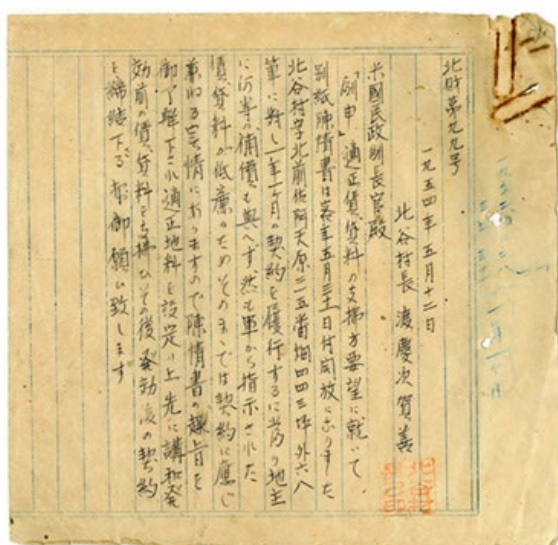 北財第九九号
一九五四年五月十二日
北谷村長 渡慶次賀善
米國民政副長官殿
「副申」適正賃貸料の支拂方要望に就いて
別紙陳情書は 年五月三十一日付開放になりました
北谷村字北前佐阿天原二一五番畑四四三坪外六八
筆に対し一年一ヶ月の契約を履行するに当り地主
に何等の補償も與へず然も軍から指示された
賃貸料が低廉のためそのまゝでは契約に應じ
兼ねる実情にありますので陳情書の趣旨を
御了解下され適正地料を設定の上先に講和発
効前の賃貸料を支拂ひその後発効後の契約
を締結下さる様御願い致します